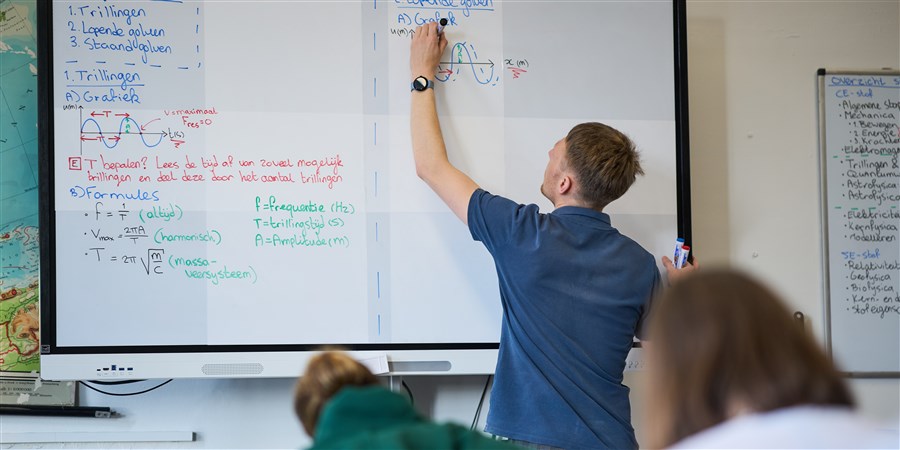 1. Trillingen
2. Lopende golven
3. Staande golven
1. Trillingen
A) Grafiek
u(m)
T
A
v=maximaal
Fres=0
t(s)
T
E T bepalen? Lees de tijd af van zoveel mogelijk
trillingen en deel deze door het aantal trillingen
B) Formules
• f = 1/T (altijd)
• Vmax = 2πA/T (harmonisch)
• T = 2π√m/C (massa-
veersysteem)
f = frequentie (Hz)
T = trillingstijd (s)
A = Amplitude (m)
2. Lopende golven
A) Grafiek
u(m)
x (m)
Overzicht
CE-stof
• Algemene
• Mechanica
1. Bewegen
2. Energie
3. Krachten
• Trillingen &
• Astrofysica
• Elektriciteit
• Kernfysica
• Modelleren
SE-stof
• Relativiteit
• Geofysica
• Biofysica
• Kern- en
• Stofeigensc